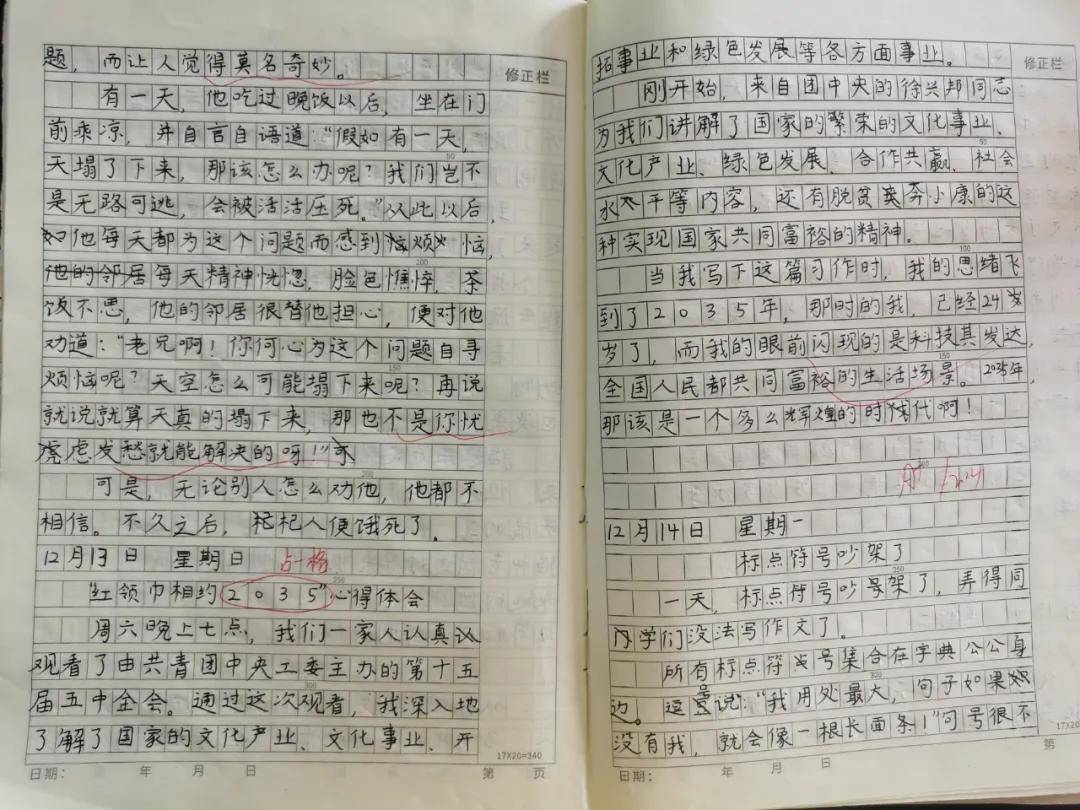 修正栏
题，而让人觉得莫名奇妙。
有一天，他吃过晚饭以后，坐在门
前乘凉，并自言自语道：“假如有一天，
天塌了下来，那该怎么办呢？我们岂不
是无路可逃，会被活活压死。”从此以后，
他每天都为这个问题而感到恼烦恼，
他的邻居每天精神恍惚，脸色憔悴，茶
饭不思，他的邻居很替他担心，便对他
劝道：“老兄啊！你何必为这个问题自寻
烦恼呢？天空怎么可能塌下来呢？再说
就说就算天真的塌下来，那也不是你忧
虑发愁就能解决的呀！”
可是，无论别人怎么劝他，他都不
相信。不久之后，杞杞人便饿死了。
12月13日 星期日 占一格
“红领巾相约2035”心得体会
周六晚上七点，我们一家人认真认
观看了由共青团中央工委主办的第十五
届五中全会。通过这次观看，我深入地
了解了国家的文化产业、文化事业、开
17X20=340
日期： 年 月 日 第 页
修正栏
拓事业和绿色发展等各方面事业。
刚开始，来自团中央的徐兴邦同志
为我们讲解了国家的繁荣的文化事业、
文化产业、绿色发展、合作共赢、社会
水平等内容，还有脱贫英奔小康的这
种实现国家共同富裕的精神。
当我写下这篇习作时，我的思绪飞
到了2035年，那时的我，已经24岁
岁了，而我的眼前闪现的是科技其发达，
全国人民都共同富裕的生活场景。2035年，
那该是一个多么辉煌的时代啊！
12月14日 星期一
标点符号吵架了
一天，标点符号吵架了，弄得同
学们没法写作文了。
所有标点符号集合在字典公公身
边。逗号说：“我用处最大，句子如果
没有我，就会像一根长面条！”句号很不
17X20
日期： 年 月 日 第